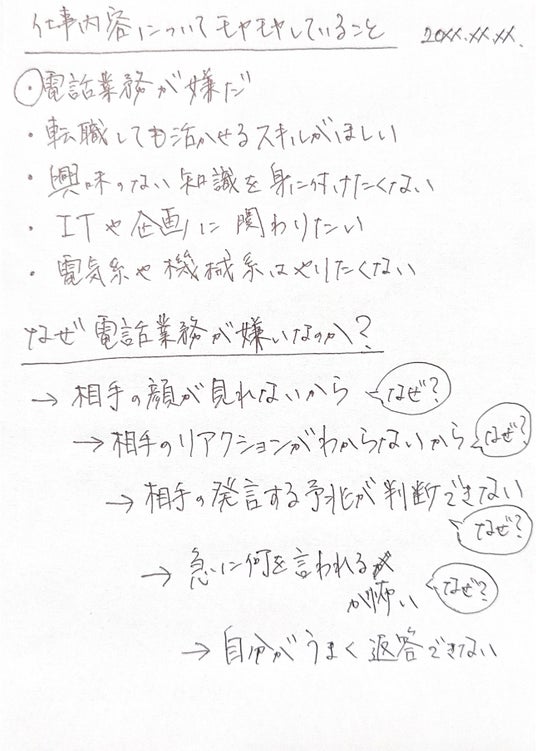 仕事内容についてモヤモヤしていること 20XX.XX.XX.
・電話業務が嫌だ
・転職しても活かせるスキルがほしい
・興味のない知識を身に付けたくない
・ITや企画に関わりたい
・電気系や機械系はやりたくない
なぜ電話業務が嫌いなのか?
→相手の顔が見れないから なぜ?
→相手のリアクションがわからないから なぜ?
→相手の発言する予兆が判断できない
なぜ?
→急に何を言われる
が怖い なぜ?
→自分がうまく返答できない